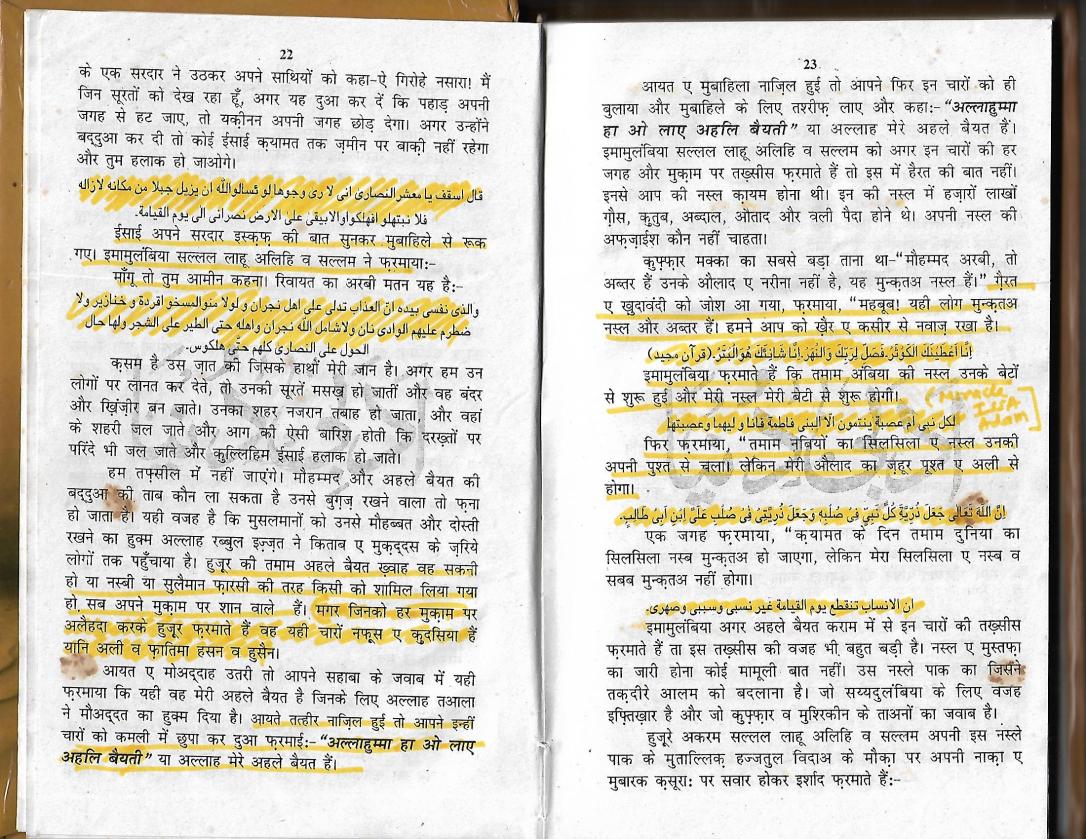 22
के एक सरदार ने उठकर अपने साथियों को कहा-ऐ गिरोहे नसारा! मैं
जिन सूरतों को देख रहा हूँ, अगर यह दुआ कर दें कि पहाड़ अपनी
जगह से हट जाए, तो यक़ीनन अपनी जगह छोड़ देगा। अगर उन्होंने
बद्दुआ कर दी तो कोई ईसाई क़यामत तक ज़मीन पर बाक़ी नहीं रहेगा
और तुम हलाक हो जाओगे।
قال اسقف يا معشر النصارى انى لا رى وجوها لو ئسالو الله ان يزيل جبلا من مكانه لازاله
فلا تبتهلو افهلكوا ولا يبقى على الارض نصرانى الى يوم القيامة.
ईसाई अपने सरदार इस्क़फ़ की बात सुनकर मुबाहिले से रूक
गए। इमामुलंबिया सल्लल लाहू अलिहि व सल्लम ने फ़रमाया:-
माँगू तो तुम आमीन कहना। रिवायत का अरबी मतन यह है:-
والذى نفسى بيده ان العذاب تدلى على اهل نجران ولولا منو المسخو اقردة و خنازير ولا
ضطرم عليهم الوادى نان ولا شامل الله نجران واهله حتى الطير على الشجر ولها حال
الحول على النصارى كلهم حتى هلكوس.
क़सम है उस ज़ात की जिसके हाथों मेरी जान है। अगर हम उन
लोगों पर लानत कर देते, तो उनकी सूरतें मसख़ हो जातीं और वह बंदर
और ख़िंज़ीर बन जाते। उनका शहर नजरान तबाह हो जाता, और वहां
के शहरी जल जाते और आग की ऐसी बारिश होती कि दरख़्तों पर
परिंदे भी जल जाते और कुल्लिहिम ईसाई हलाक हो जाते।
हम तफ्सील में नहीं जाएंगे। मौहम्मद और अहले बैयत की
बद्दुआ की ताब कौन ला सकता है उनसे बुग़ज़ रखने वाला तो फ़ना
हो जाता है। यही वजह है कि मुसलमानों को उनसे मौहब्बत और दोस्ती
रखने का हुक्म अल्लाह रब्बुल इज़्ज़त ने किताब ए मुक़द्दस के ज़रिये
लोगों तक पहुँचाया है। हुजूर की तमाम अहले बैयत ख़्वाह वह सकनी
हो या नस्बी या सुलैमान फ़ारसी की तरह किसी को शामिल लिया गया
हो, सब अपने मुक़ाम पर शान वाले हैं। मगर जिनको हर मुक़ाम पर
अलैहदा करके हुजूर फ़रमाते हैं वह यही चारों नफूस ए कुदसिया हैं
यानि अली व फ़ातिमा हसन व हुसैन।
आयत ए मौअद्दाह उतरी तो आपने सहाबा के जवाब में यही
फ़रमाया कि यही वह मेरी अहले बैयत है जिनके लिए अल्लाह तआला
ने मौअद्दत का हुक्म दिया है। आयते तत्हीर नाज़िल हुई तो आपने इन्हीं
चारों को कमली में छुपा कर दुआ फ़रमाई:- "अल्लाहुम्मा हा ओ लाए
अहलि बैयती" या अल्लाह मेरे अहले बैयत हैं।
23
आयत ए मुबाहिला नाज़िल हुई तो आपने फिर इन चारों को ही
बुलाया और मुबाहिले के लिए तशरीफ़ लाए और कहा:- "अल्लाहुम्मा
हा ओ लाए अहलि बैयती" या अल्लाह मेरे अहले बैयत हैं।
इमामुलंबिया सल्लल लाहू अलिहि व सल्लम को अगर इन चारों की हर
जगह और मुक़ाम पर तख़्सीस फ़रमाते हैं तो इस में हैरत की बात नहीं।
इनसे आप की नस्ल क़ायम होना थी। इन की नस्ल में हज़ारों लाखों
ग़ौस, कुतुब, अब्दाल, ओताद और वली पैदा होने थे। अपनी नस्ल की
अफ़ज़ाईश कौन नहीं चाहता।
कुफ्फ़ार मक्का का सबसे बड़ा ताना था-"मौहम्मद अरबी, तो
अब्तर हैं उनके औलाद ए नरीना नहीं है, यह मुन्क़तअ नस्ल हैं।" ग़ैरत
ए खुदावंदी को जोश आ गया, फ़रमाया, "महबूब! यही लोग मुन्क़तअ
नस्ल और अब्तर हैं। हमने आप को ख़ैर ए कसीर से नवाज़ रखा है।
إنا أعطينك الكوثر. فصل لربك والنهر. إنا شانئك هو الأبتر. (قرآن مجيد)
इमामुलंबिया फ़रमाते हैं कि तमाम अंबिया की नस्ल उनके बेटों
से शुरू हुई और मेरी नस्ल मेरी बेटी से शुरू होगी।
(Miracle
ISA
Adam)
لكل نبى ام عصبة ينتمون الا البنى فاطمة فانا و ليهما وعصبتها
फिर फ़रमाया, "तमाम नबियों का सिलसिला ए नस्ल उनकी
अपनी पुश्त से चला। लेकिन मेरी औलाद का ज़हूर पूश्त ए अली से
होगा।
ان الله تعالى جعل ذرية كل نبي فى صلبه وجعل ذريتى فى صلب على ابن ابى طالب.
एक जगह फ़रमाया, "क़यामत के दिन तमाम दुनिया का
सिलसिला नस्ब मुन्क़तअ हो जाएगा, लेकिन मेरा सिलसिला ए नस्ब व
सबब मुन्क़तअ नहीं होगा।
ان الانساب تنقطع يوم القيامة غير نسبى وسببى وصهرى.
इमामुलंबिया अगर अहले बैयत कराम में से इन चारों की तख़्सीस
फ़रमाते हैं ता इस तख़्सीस की वजह भी बहुत बड़ी है। नस्ल ए मुस्तफ़ा
का जारी होना कोई मामूली बात नहीं। उस नस्ले पाक का जिसने
तक़दीरे आलम को बदलाना है। जो सय्यदुलंबिया के लिए वजह
इफ़्तिख़ार है और जो कुफ्फ़ार व मुश्रिकीन के ताअनों का जवाब है।
हुजूरे अकरम सल्लल लाहू अलिहि व सल्लम अपनी इस नस्ले
पाक के मुताल्लिक़ हज्जतुल विदाअ के मौक़ा पर अपनी नाक़ा ए
मुबारक क़सूरा: पर सवार होकर इर्शाद फ़रमाते हैं:-